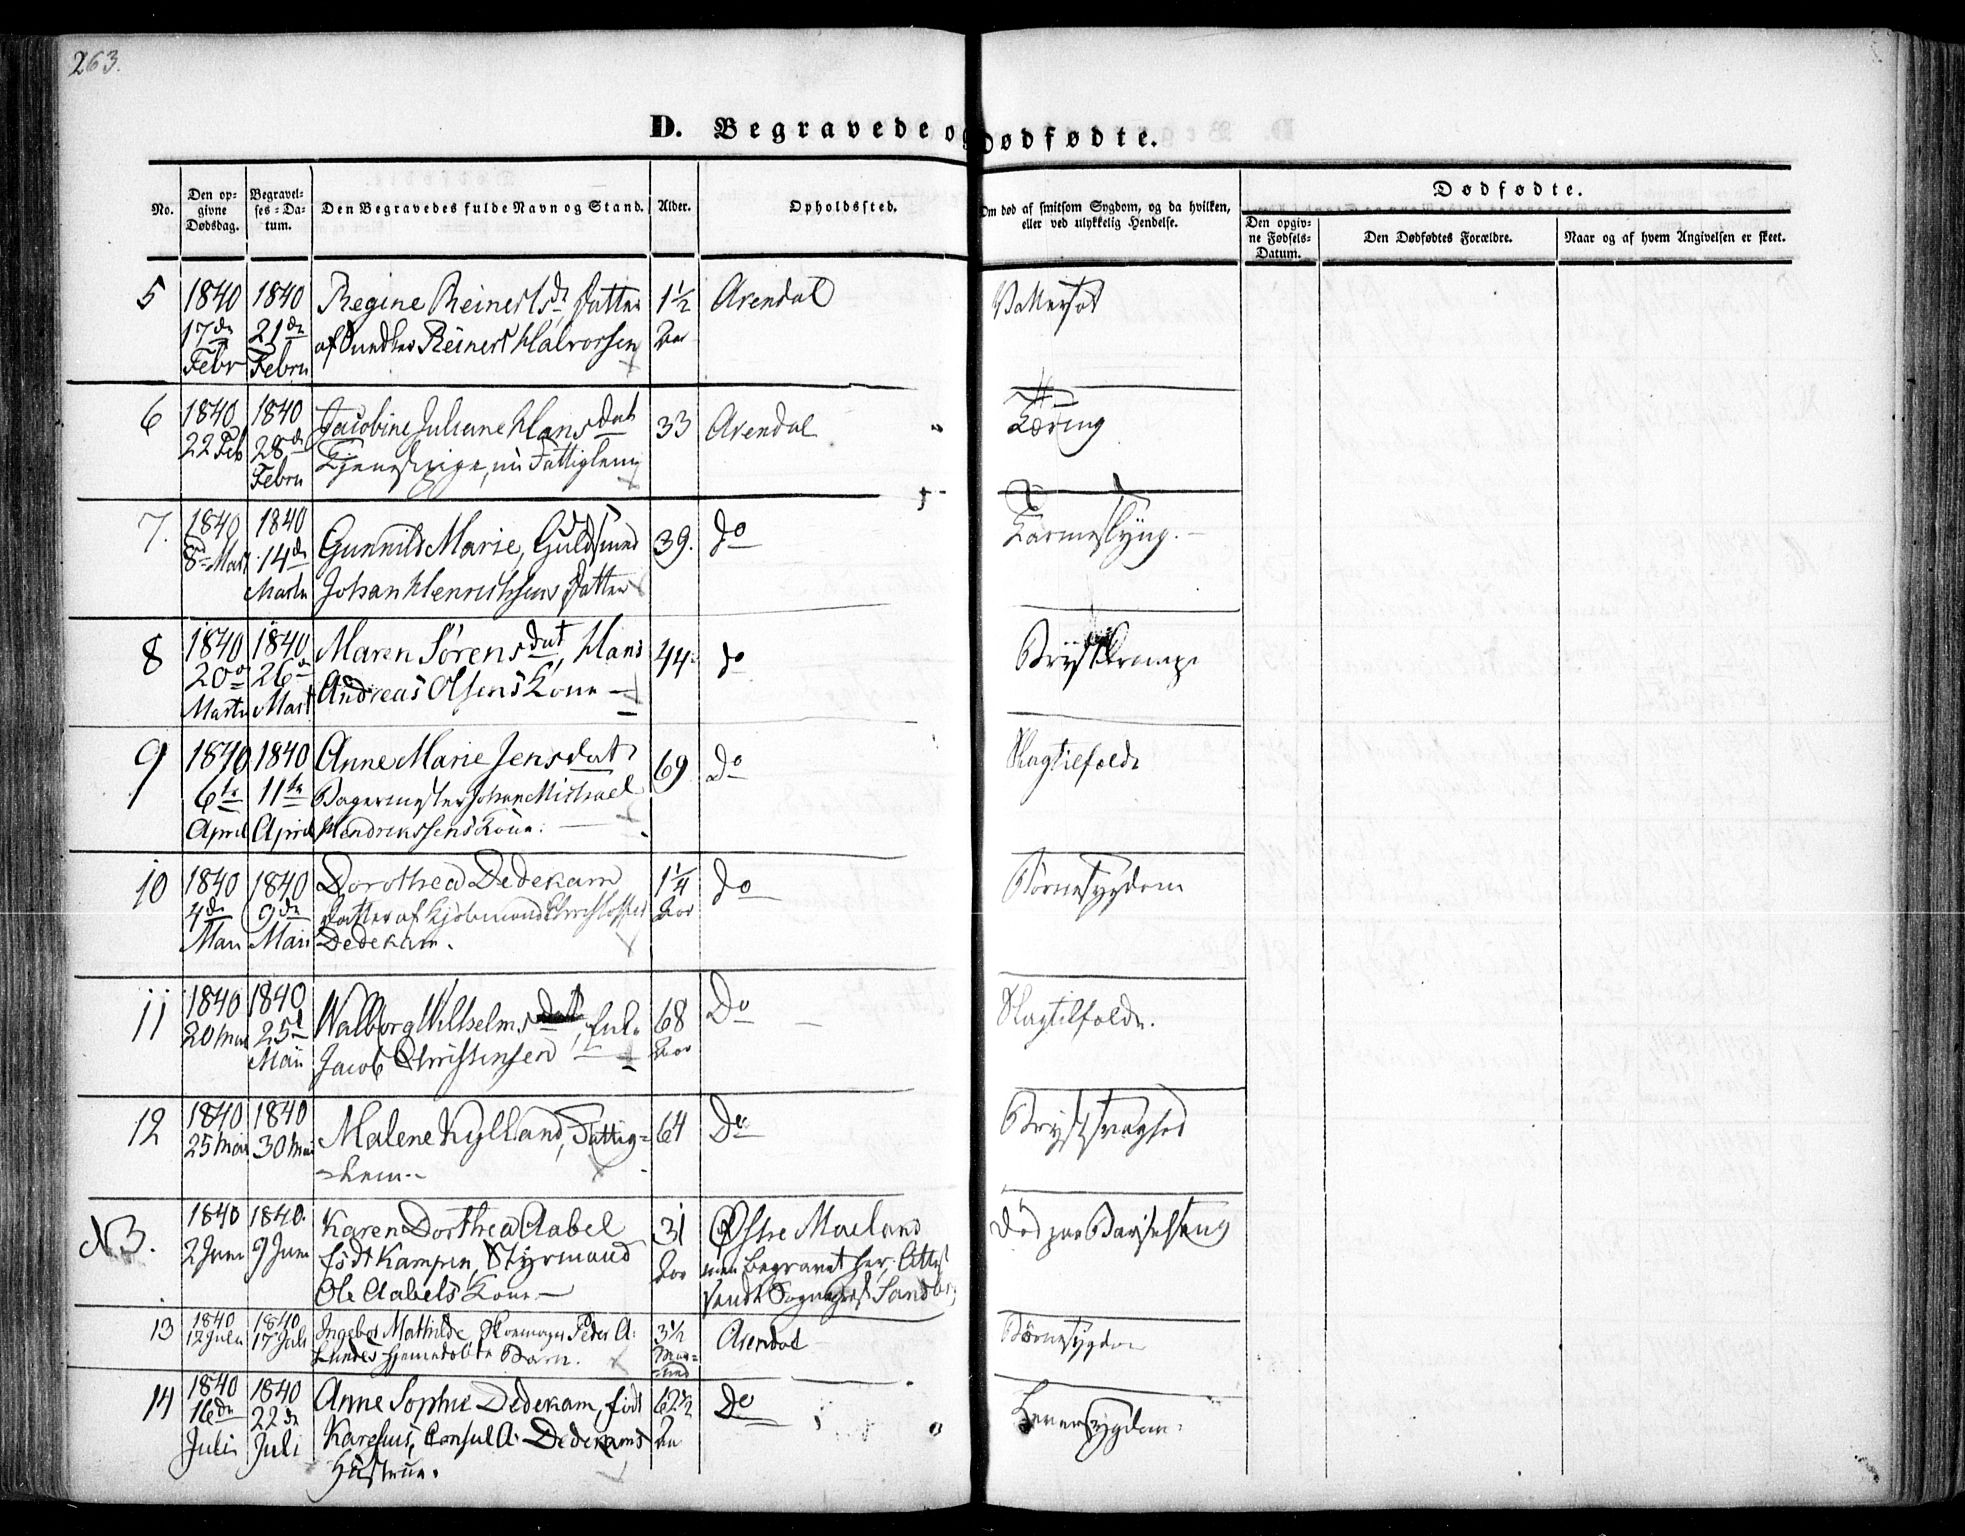 263.
D. Begravede og Dødfødte.
No.
Den op-
givne
Dødsdag.
Begravel-
ses-Da-
tum.
Den Begravedes fulde Navn og Stand.
Alder.
Opholdssted.
Om død af smitsom Sygdom, og da hvilken,
eller ved ulykkelig Hendelse.
Dødfødte.
Den opgiv-
ne Fødsels-
Datum.
Den Dødfødtes Forældre.
Naar og af hvem Angivelsen er skeet.
5 1840 1840 Regine Reinertsdr, Datter 1½ Arendal Vattersot
17de 21de af Reinert Halvorsen Aar
Febr Febru
6 1840 1840 Jacobine Juliane Hansdat 33 Arendal Tæring
22 Feb 28de Tjenestpige, nu Fattiglem
Febru
7. 1840 1840 Gunnild Marie, Guldsmed 39. do
8de Mart 14de Johan Henrichsens Datter
Marts
8 1840 1840 Maren Sørensdat, Hans 44 do Brystkrampe
20de 26de Andreas Olsens Kone
Marts Mart
9 1840 1840 Anne Marie Jensdat 69 Do Slagtilfælde
6te 11te Bagermester Johan Michael
April April Hendrikssens Kone.
10 1840 1840 Dorothea Dedekam 1¼ do Børnesygdom
4de 9de Datter af Kjøbmand Christopher Aar
Mai Maii Dedekam.
11 1840 1840 Walborg Wilhelmsdat, Enke 68 Do Slagtilfælde.
20 Mai 25d Jacob Christensen Aar
Maii
12 1840 1840 Malene Kylland, Fattig= 64 Do Brystsvaghed
25 Mai 30 Mai =lem
13. 1840 1840. Karen Dorthea Aabel 31 Østre Moeland Død paa Barselseng
2 Juni 9 Juni født Kampen, Styrmand Aar men begravet her,
Ole Aabels Kone
13 1840 1840 Ingebor Mathilde, Skoemager Peder A: 3½ Arendal Børnesygdom
12 Juli 17 Juli Lundes hjemmedøbte Barn.
14 1840 1840 Anne Sophie Dedekam, født 62½ Do Leversygdom
16de 22de Consul A. Dedekams Aar
Juli Juli Hustrue.